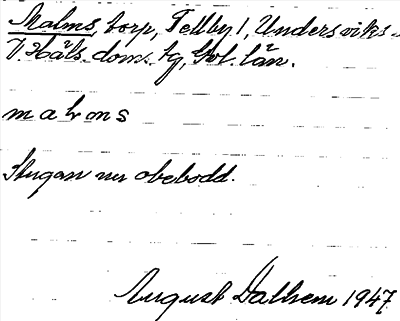 Malms, torp, Tellby 1, Undersviks-
V. Häls. doms. tg, Gvl. län.
malms
Stugan nu obebodd.
August Dalhem 1947